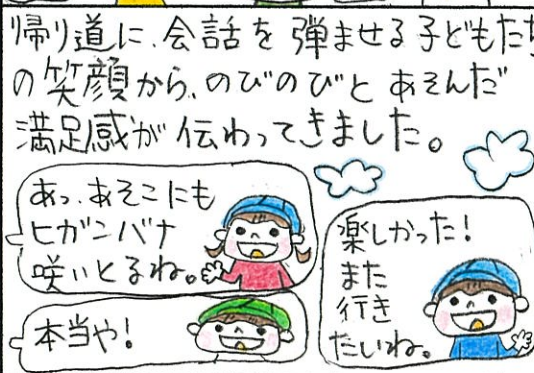 帰り道に、会話を弾ませる子どもたち
の笑顔から、のびのびとあそんだ
満足感が伝わってきました。
あっ、あそこにも
ヒガンバナ
咲いとるね。
本当や！
楽しかった！
また
行き
たいね。